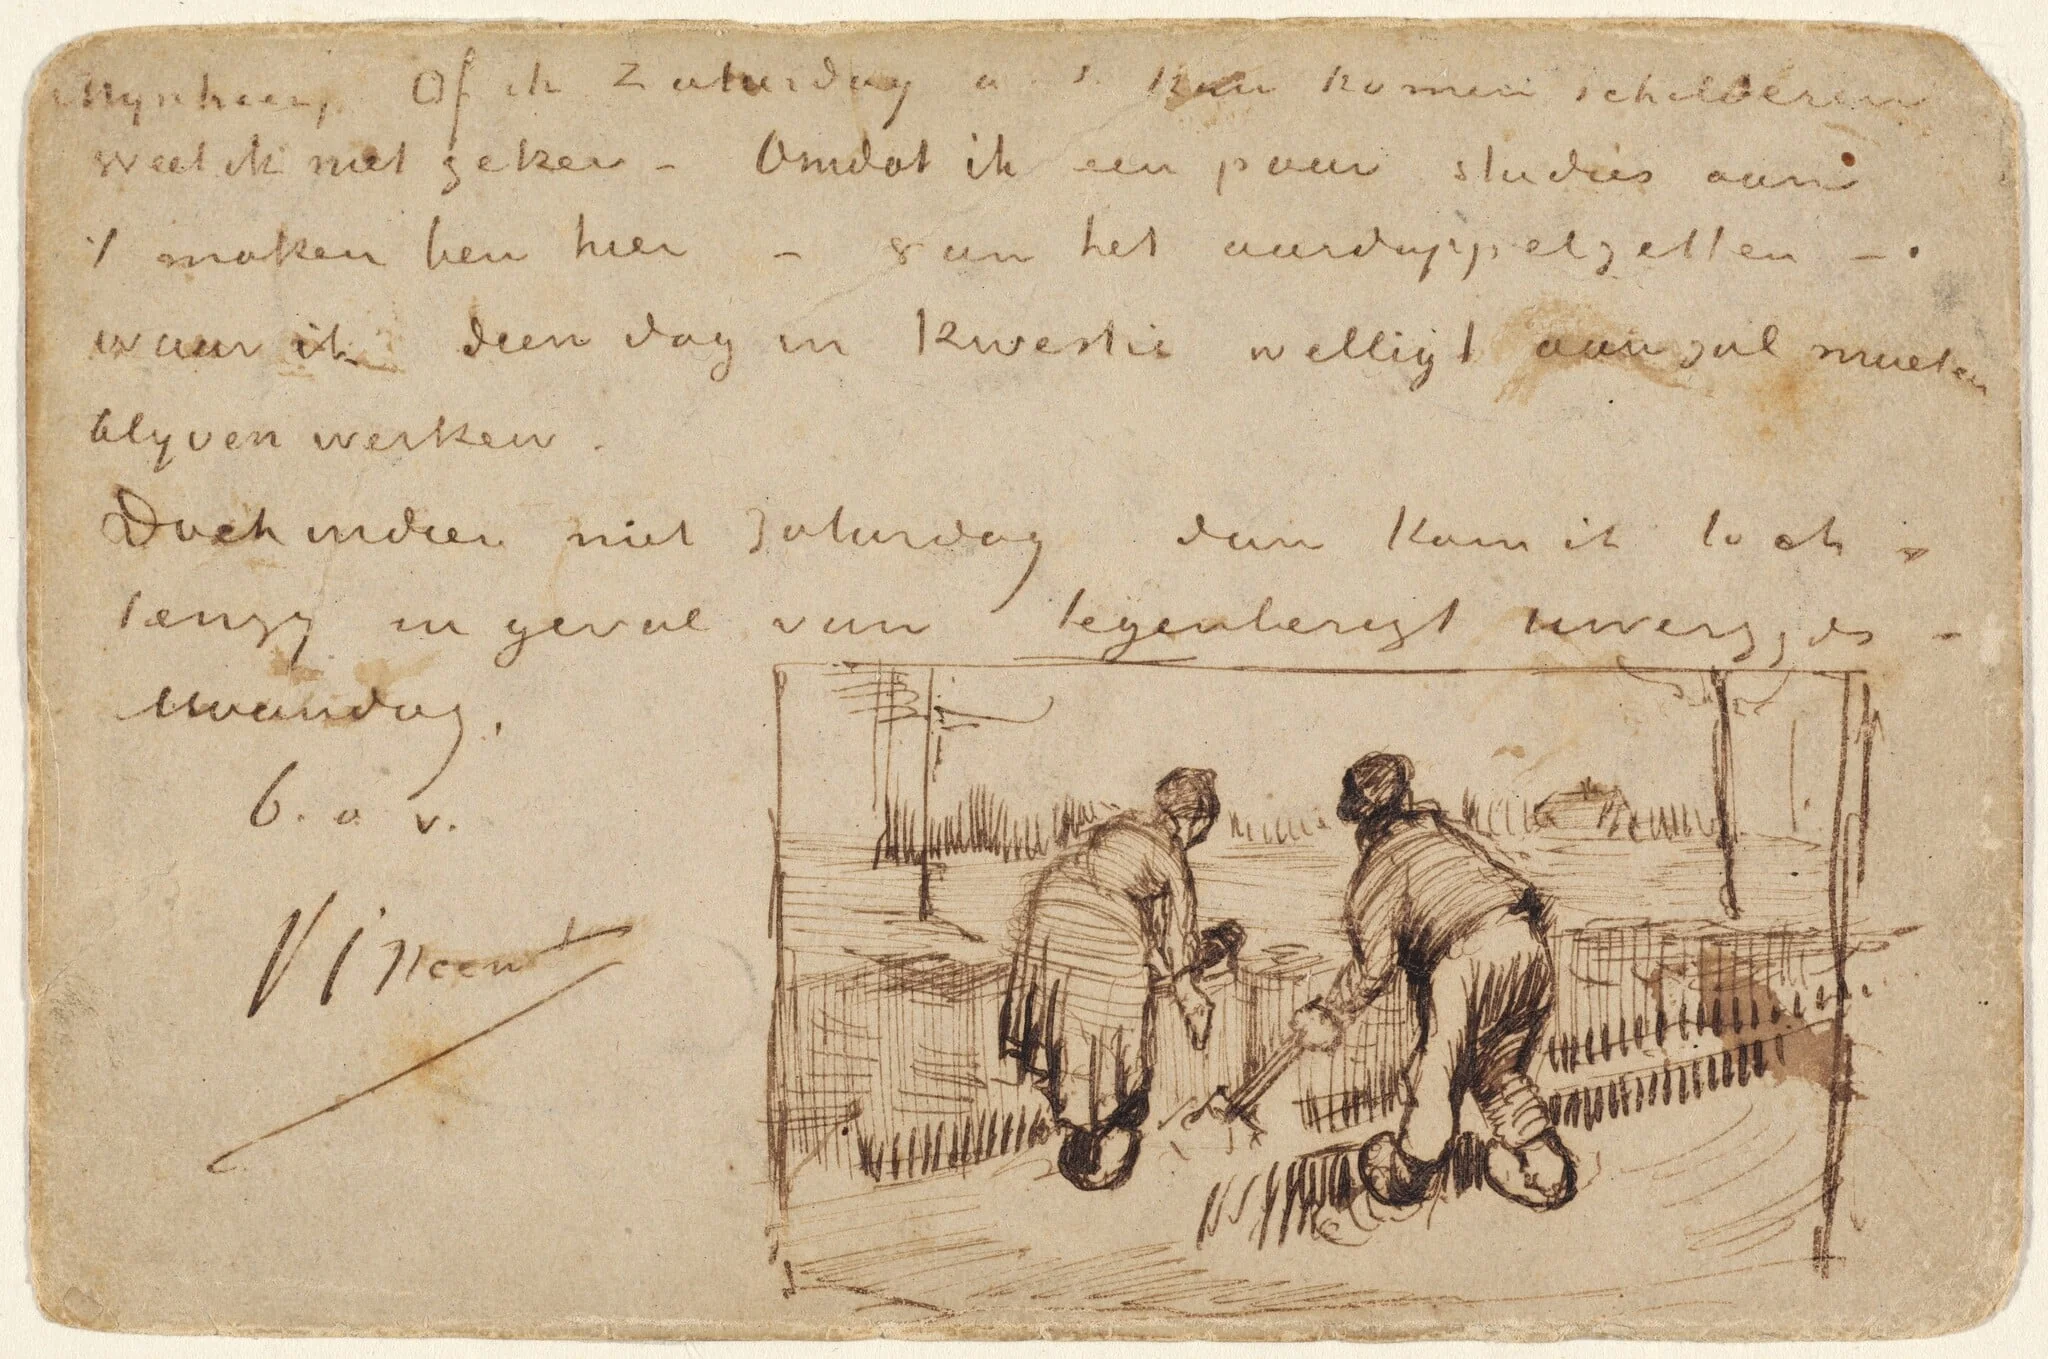 Mynheer, Of ik Zaturdag a s. kan komen schilderen
weet ik niet zeker – Omdat ik een paar studies aan
't maken ben hier – van het aardappelzetten –
waar ik dien dag in kwestie welligt aan zal moeten
blyven werken.
Doch indien niet Zaturdag dan kom ik toch –
tenzy in geval van tegenberigt uwerzyds –
Maandag,
b. a. v.
Vincent